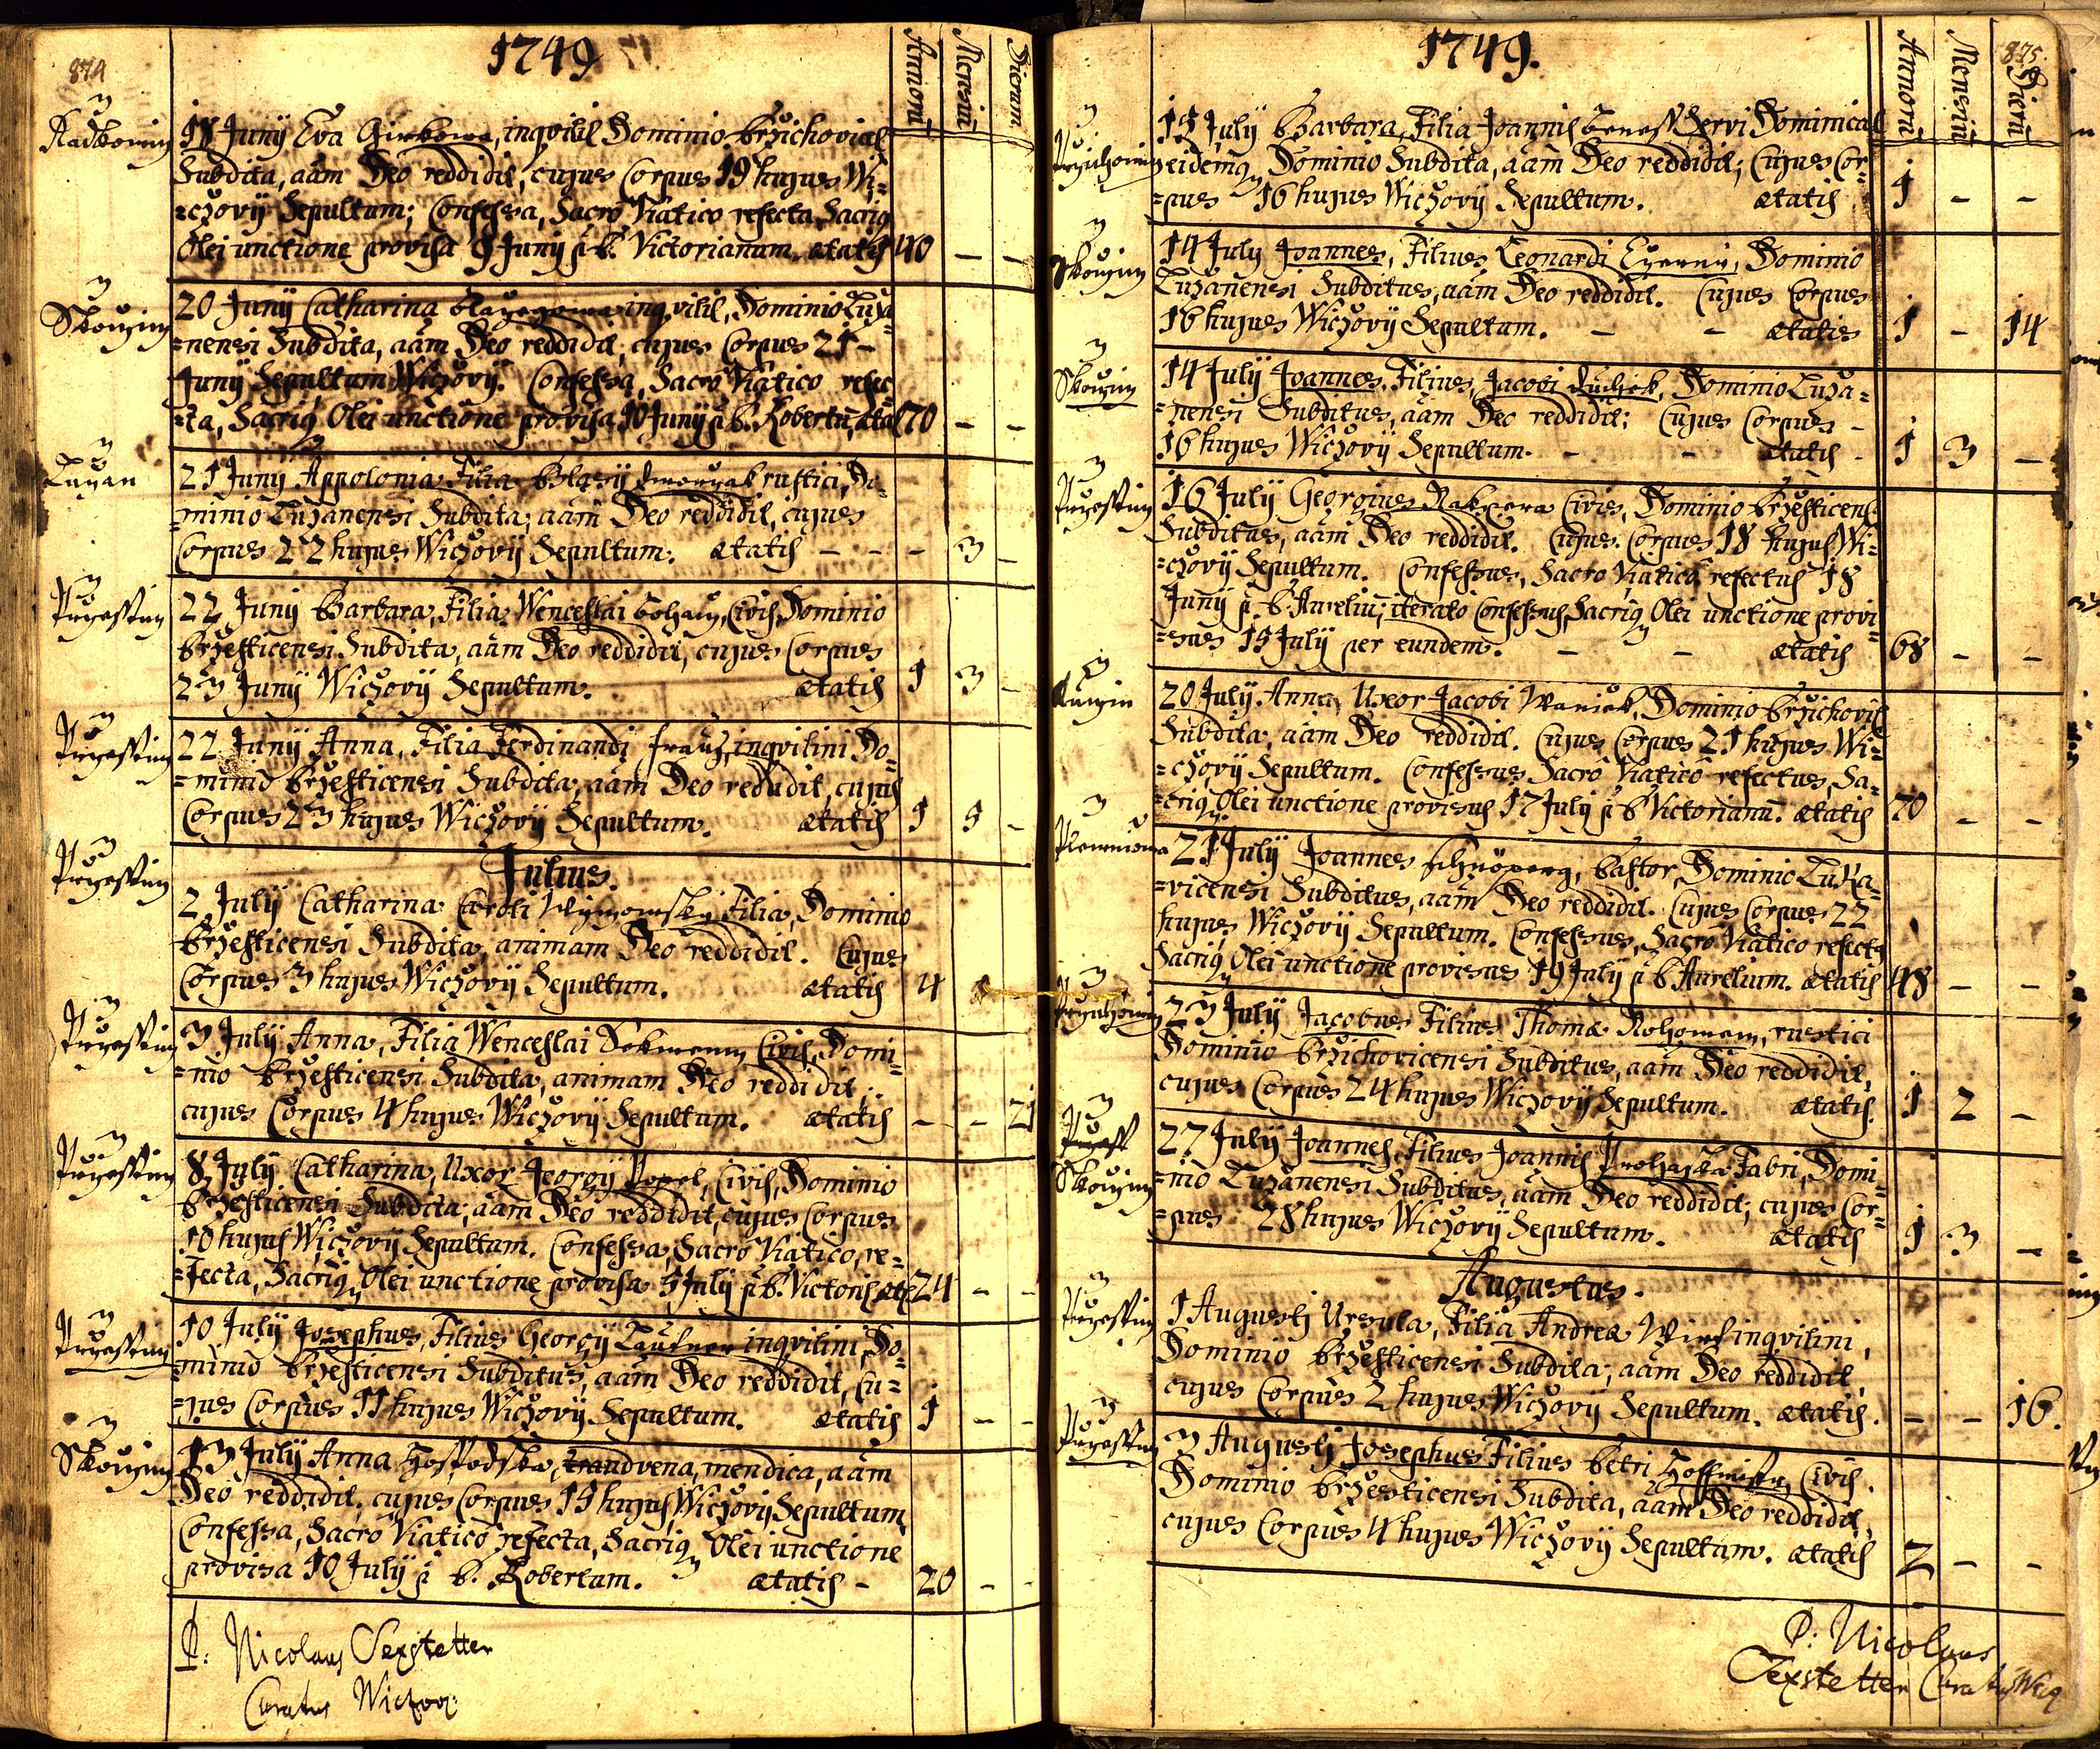 874
1749
Annoru
Mensiu
Dierum
Radkowiny
18 Junÿ Eva Girkowa, inqvilil Dominio Brzichovicel
Subdita, aam Deo reddidit, cujus Corpus 19 hujus Wi=
=czovÿ Sepultum; Confessa, Sacro Viatico refecta, Sacriq
Olei unctione provisa 9 Junÿ p B. Victorianum. ætatis 40 – –
Skoczin
20 Junÿ Catharina inqvilil, Dominio Luza
=nensi Subdita, aam Deo reddidit, cujus Corpus 21 –
Junÿ Sepultum Wiczovÿ. Confessa, Sacro Viatico refec=
=ta, Sacriq Olei unctione provisa 10 Junÿ p B. Robertu, ætat 70 – –
Luzan
21 Junÿ Appolonia Filia Blasÿ rustici, Do=
=minio Luzanensi Subdita; aam Deo reddidit, cujus
Corpus 22 hujus Wiczovÿ Sepultum. ætatis – – – 3 –
Przesstiz
22 Junÿ Barbara, Filia Wenceslai Civis, Dominio
Brzesticensi Subdita, aam Deo reddidit, cujus Corpus
23 Junÿ Wiczovÿ Sepultum. ætatis 1 3 –
Przesstiz
22 Junÿ Anna, Filia Ferdinandi Frauz, inqvilini Do=
=minio Brzesticensi Subdita, aam Deo reddidit, cujus
Corpus 23 hujus Wiczovÿ Sepultum. ætatis 1 5 –
Julius.
Przesstiz
2 Julÿ Catharina Caroli Wÿmomskÿ Filia, Dominio
Brzesticensi Subdita, animam Deo reddidit. Cujus
Corpus 3 hujus Wiczovÿ Sepultum. ætatis 4
Przesstiz
3 Julÿ Anna, Filia Wenceslai Civis, Domi=
=nio Brzesticensi Subdita, animam Deo reddidit;
cujus Corpus 4 hujus Wiczovÿ Sepultum. ætatis – – 21
Przesstiz
8 Julÿ Catharina, Uxor Georgÿ Popel, Civis, Dominio
Brzesticensi Subdita; aam Deo reddidit, cujus Corpus
10 hujus Wiczovÿ Sepultum. Confessa, Sacro Viatico, re=
=fecta, Sacriq Olei unctione provisa 5 Julÿ p B. Victoris æta 24 – –
Przesstiz
10 Julÿ Josephus, Filius Georgÿ Lautner inqvilini, Do=
=minio Brzesticensi Subditus, aam Deo reddidit, Cu=
=jus Corpus 11 hujus Wiczovÿ Sepultum. ætatis 1 – –
Skoczin
13 Julÿ Anna Hospodska, mendica, aam
Deo reddidit, cujus Corpus 15 hujus Wiczovÿ Sepultum,
Confessa, Sacro Viatico refecta, Sacriq Olei unctione
provisa 10 Julÿ p B. Robertum. ætatis – 20 – –
P: Nicolaus Sexstetter
Curatus Wiczov:
875
1749.
Annoru
Mensiu
Dieru
15 Julÿ Barbara, Filia Joannis Beness Servi Dominical
eidemq Dominio Subdita, aam Deo reddidit; Cujus Cor=
=pus 16 hujus Wiczovÿ Sepultum. ætatis 1 – –
Skoczin
14 Julÿ Joannes, Filius Leonardi Dominio
Luzanensi Subditus, aam Deo reddidit. Cujus Corpus
16 hujus Wiczovÿ Sepultum. – – ætatis 1 – 14
Skoczin
14 Julÿ Joannes, Filius, Jacobi Dominio Luza=
=nensi Subditus, aam Deo reddidit; Cujus Corpus –
16 hujus Wiczovÿ Sepultum. – – ætatis 1 3 –
Przesstiz
16 Julÿ Georgius Civis, Dominio Brzesticens
Subditus, aam Deo reddidit. Cujus Corpus 18 hujus Wi=
=czovÿ Sepultum. Confessus, Sacro Viatico refectus 18
Junÿ p B Aureliu; iterato Confessus, Sacriq Olei unctione provi=
=sus 15 Julÿ per eundem. – – ætatis 68 – –
20 Julÿ Anna Uxor Jacobi Waniek, Dominio Brzichovis
Subdita, aam Deo reddidit. Cujus Corpus 21 hujus Wi=
=czovÿ Sepultum. Confessus Sacro Viatico refectus, Sa=
=criq Olei unctione provisus 17 Julÿ p B Victorianu. ætatis 70 – –
21 Julÿ Joannes Pastor, Dominio Luka=
=vicensi Subditus, aam Deo reddidit. Cujus Corpus 22
hujus Wiczovÿ Sepultum. Confessus, Sacro Viatico refecta,
Sacriq Olei unctione provisus 19 Julÿ p B Aurelium. ætatis 48 – –
23 Julÿ Jacobus Filius Thomæ rustici
Dominio Brzichovicensi Subditus, aam Deo reddidit,
cujus Corpus 24 hujus Wiczovÿ Sepultum. ætatis. 1 2 –
Skoczin
27 Julÿ Joannes, Filius Joannis Prohaska Fabri, Domi=
=nio Luzanensi Subditus, aam Deo reddidit; cujus Cor=
=pus 28 hujus Wiczovÿ Sepultum. ætatis 1 3 –
Augustus.
Przesstiz
1 Augusti Ursula, Filia Andreæ Wirs inqvilini,
Dominio Brzesticensi Subdita; aam Deo reddidit,
cujus Corpus 2 hujus Wiczovÿ Sepultum. ætatis. – – 16.
Przesstiz
3 Augusti Josephus Filius Petri Civis.
Dominio Brzesticensi Subdita, aam Deo reddidit,
cujus Corpus 4 hujus Wiczovÿ Sepultum. ætatis 2 – –
P: Nicolaus
Sexstetter Curatus